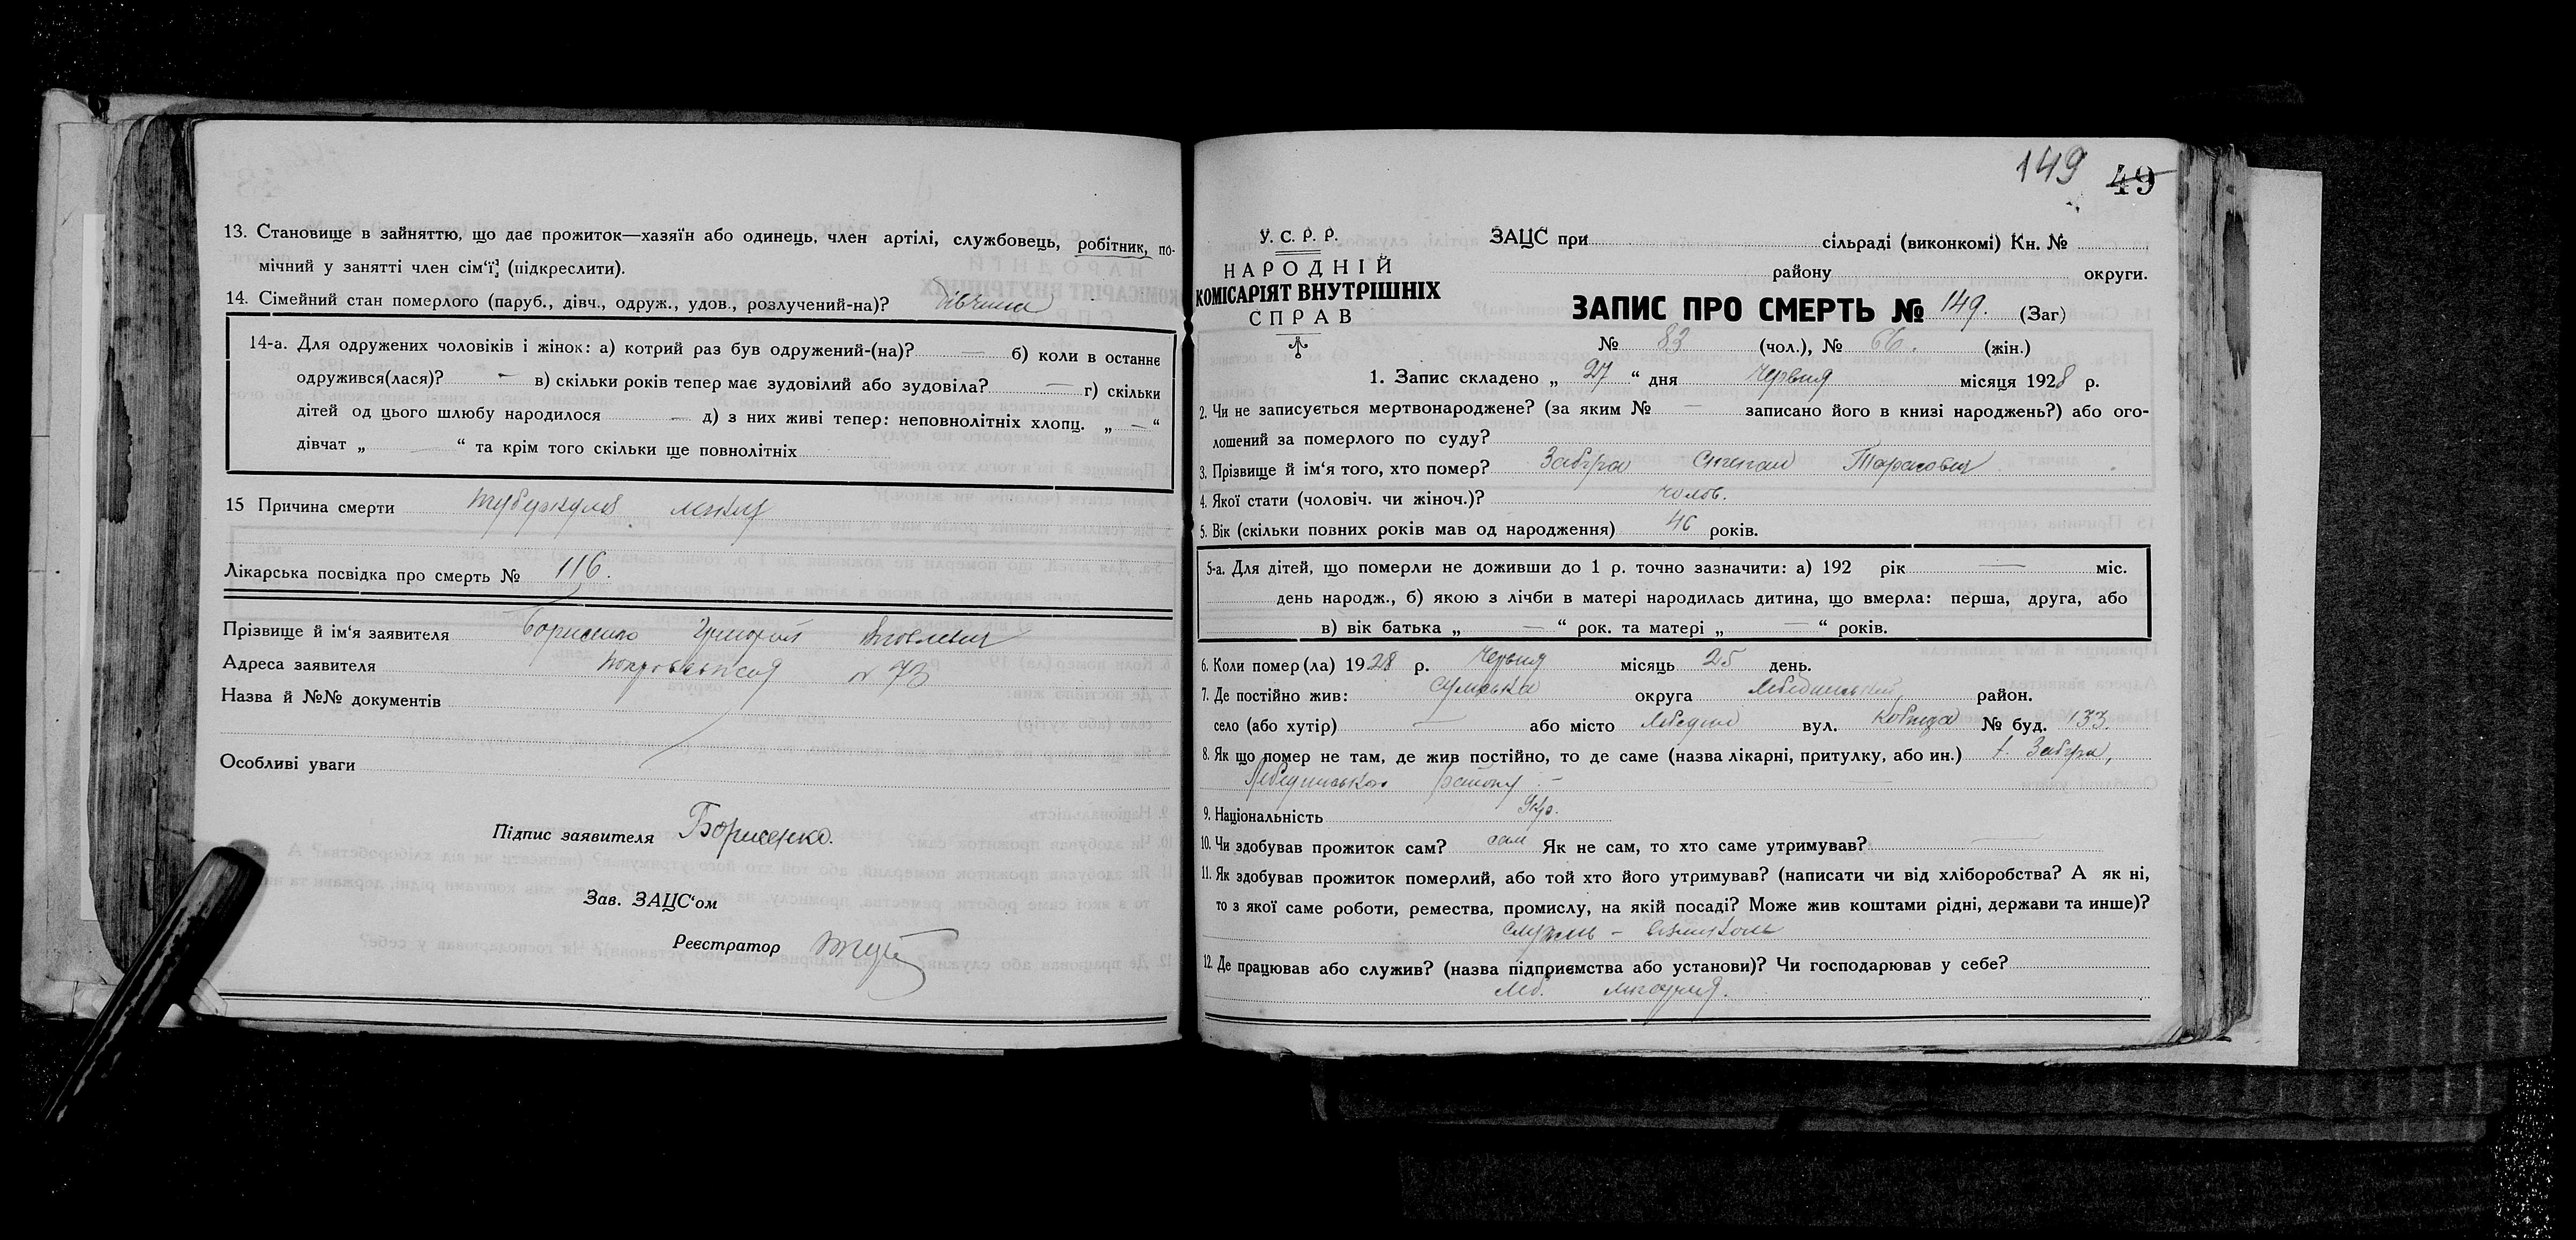 13. Становище в зайняттю, що дає прожиток—хазяїн або одинець, член артілі, службовець, робітник, по-
мічний у занятті член сім‘ї; (підкреслити).
14. Сімейний стан померлого (паруб., дівч., одруж., удов., розлучений-на)? дівчина
14-а. Для одружених чоловіків і жінок: а) котрий раз був одружений-(на)? — б) коли в останнє
одружився(лася)? — в) скільки років тепер має зудовілий або зудовіла? — г) скільки
дітей од цього шлюбу народилося — д) з них живі тепер: неповнолітніх хлопц. „ — “
дівчат „ — “ та крім того скільки ще повнолітніх
15 Причина смерти туберкульоз
Лікарська посвідка про смерть № 116.
Прізвище й ім‘я заявителя Борисенко
Адреса заявителя Покровський № 73
Назва й №№ документів
Особливі уваги
Підпис заявителя Борисенко.
Зав. ЗАЦС‘ом
Реєстратор
149 49
У. С. Р. Р.
НАРОДНІЙ
КОМІСАРІЯТ ВНУТРІШНІХ
СПРАВ
ЗАЦС при сільраді (виконкомі) Кн. №
району округи.
ЗАПИС ПРО СМЕРТЬ № 149. (Заг)
№ 83 (чол.), № 66. (жін.)
1. Запис складено „ 27 “ дня Червня місяця 1928 р.
2. Чи не записується мертвонароджене? (за яким № — записано його в книзі народжень?) або ого-
лошений за померлого по суду?
3. Прізвище й ім‘я того, хто помер? Забгра Степан Тарасович
4. Якої стати (чоловіч. чи жіноч.)? чолов.
5. Вік (скільки повних років мав од народження) 46 років.
5-а. Для дітей, що померли не доживши до 1 р. точно зазначити: а) 192 рік — міс.
день народж., б) якою з лічби в матері народилась дитина, що вмерла: перша, друга, або
в) вік батька „ — “ рок. та матері „ — “ років.
6. Коли помер (ла) 1928 р. Червня місяць 25 день.
7. Де постійно жив: Сумська округа Лебединський район.
село (або хутір) — або місто Лебедин вул. Кобижа № буд. 133.
8. Як що помер не там, де жив постійно, то де саме (назва лікарні, притулку, або ин.) х. Забгра,
Лебединського району —
9. Національність Укр.
10. Чи здобував прожиток сам? сам Як не сам, то хто саме утримував? —
11. Як здобував прожиток померлий, або той хто його утримував? (написати чи від хліборобства? А як ні,
то з якої саме роботи, ремества, промислу, на якій посаді? Може жив коштами рідні, держави та инше)?
12. Де працював або служив? (назва підприємства або установи)? Чи господарював у себе?